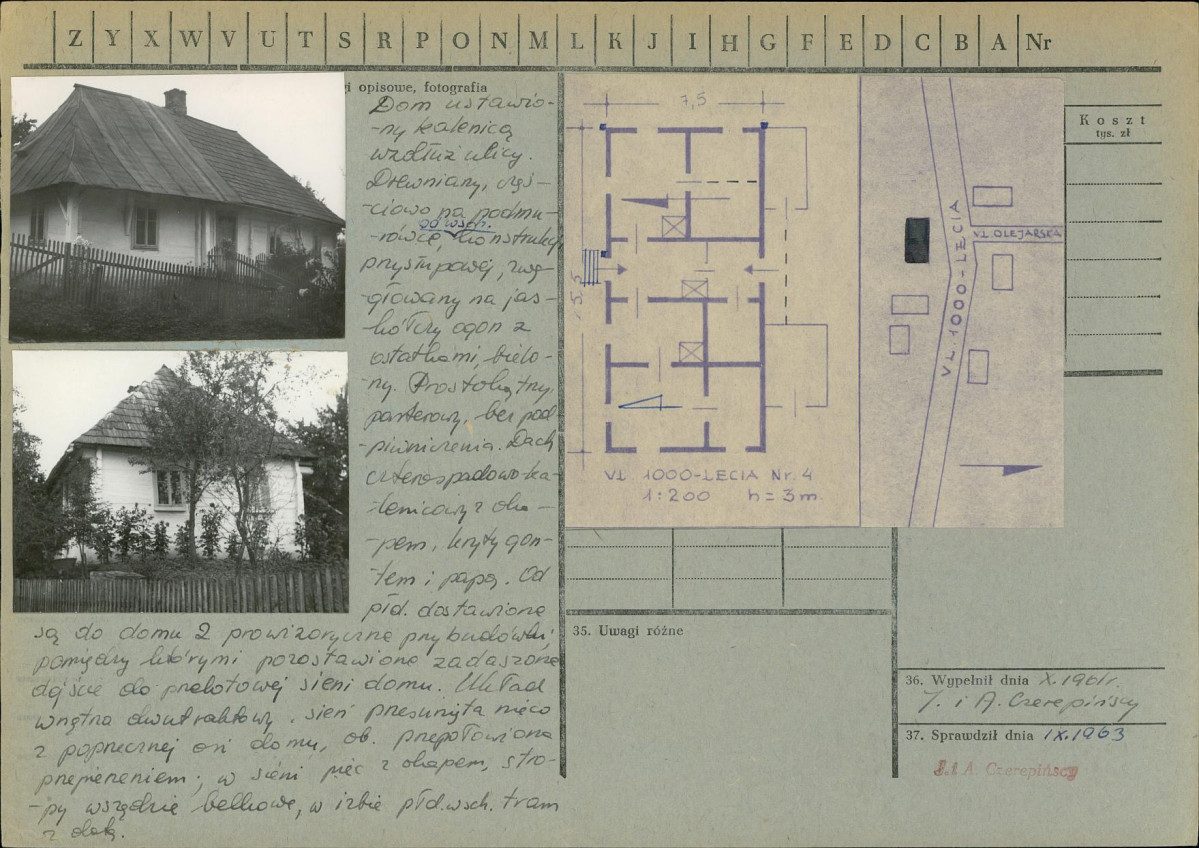 Z Y X W V U T S R P O N M L K J I H G F E D C B A Nr
i opisowe, fotografia
Dom ustawio-
-ny kalenicą
wzdłuż ulicy.
Drewniany, częś-
-ciowo na podmu-
od wsch.
-rówce, konstrukcji
przysłupowej, zwę-
-głowany na jas-
-kółczy ogon z
ostatkami, bielo-
-ny. Prostokątny,
parterowy, bez pod-
-piwniczenia. Dach
czterospadowo-ka-
-lenicowy z oka-
-pem, kryty gon-
-tem i papą. Od
płd. dostawione
są do domu 2 prowizoryczne przybudówki,
pomiędzy którymi pozostawione zadaszone
dojście do przelotowej sieni domu. Układ
wnętrza dwutraktowy. sień przesunięta nieco
z poprzecznej osi domu, ob. przepołowiona
przepierzeniem; w sieni piec z okapem, stro-
-py wszędzie belkowe, w izbie płd. wsch. tram
z datą.
7,5
UL. 1000-LECIA Nr. 4
1:200 h=3m.
UL. OLEJARSKA
UL. 1000-LECIA
Koszt
tys. zł
35. Uwagi różne
36. Wypełnił dnia X.1961r.
J. i A. Czerepińscy
37. Sprawdził dnia IX.1963
J. i A. Czerepińscy